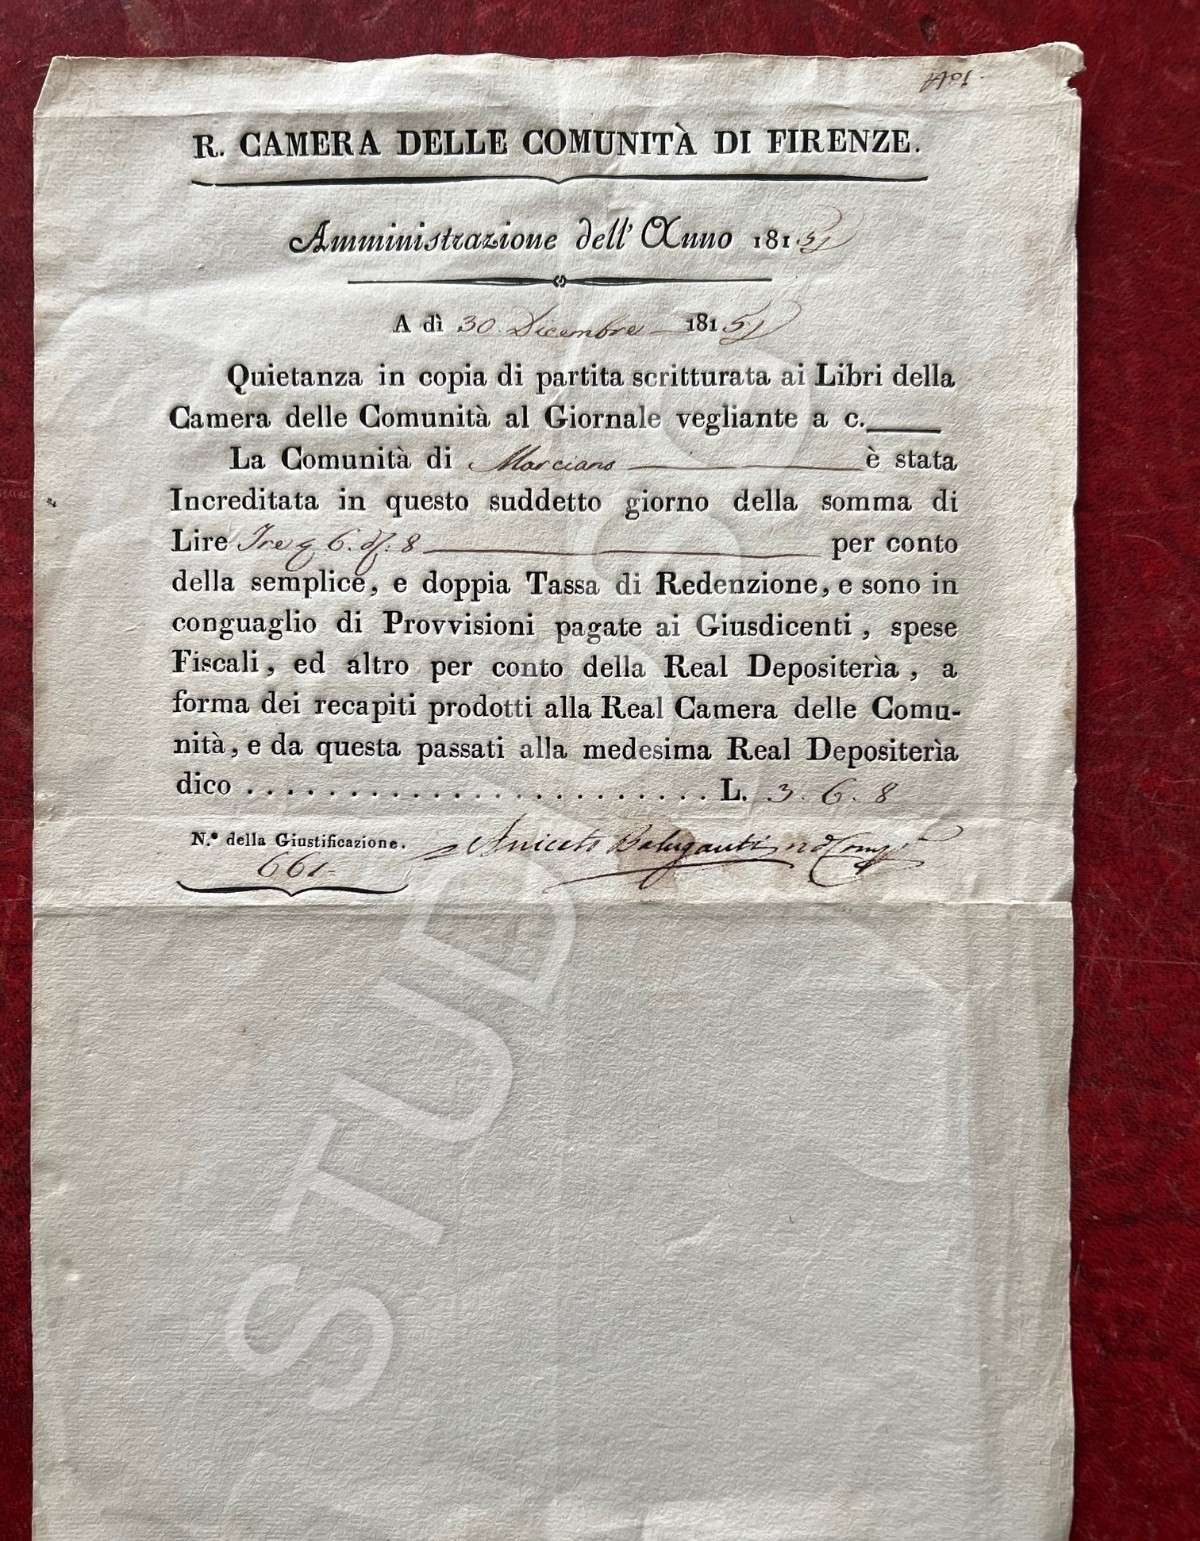 R. CAMERA DELLE COMUNITÀ DI FIRENZE.
Amministrazione dell' Anno 1815
A dì 30 Dicembre 1815
Quietanza in copia di partita scritturata ai Libri della
Camera delle Comunità al Giornale vegliante a c.
La Comunità di Marciano è stata
Increditata in questo suddetto giorno della somma di
Lire Tre 6. 8 per conto
della semplice, e doppia Tassa di Redenzione, e sono in
conguaglio di Provvisioni pagate ai Giusdicenti, spese
Fiscali, ed altro per conto della Real Depositerìa, a
forma dei recapiti prodotti alla Real Camera delle Comu-
nità, e da questa passati alla medesima Real Depositerìa
dico ....................... L. 3. 6. 8
N.º della Giustificazione.
661
Aniceto Baluganti
STUDIO